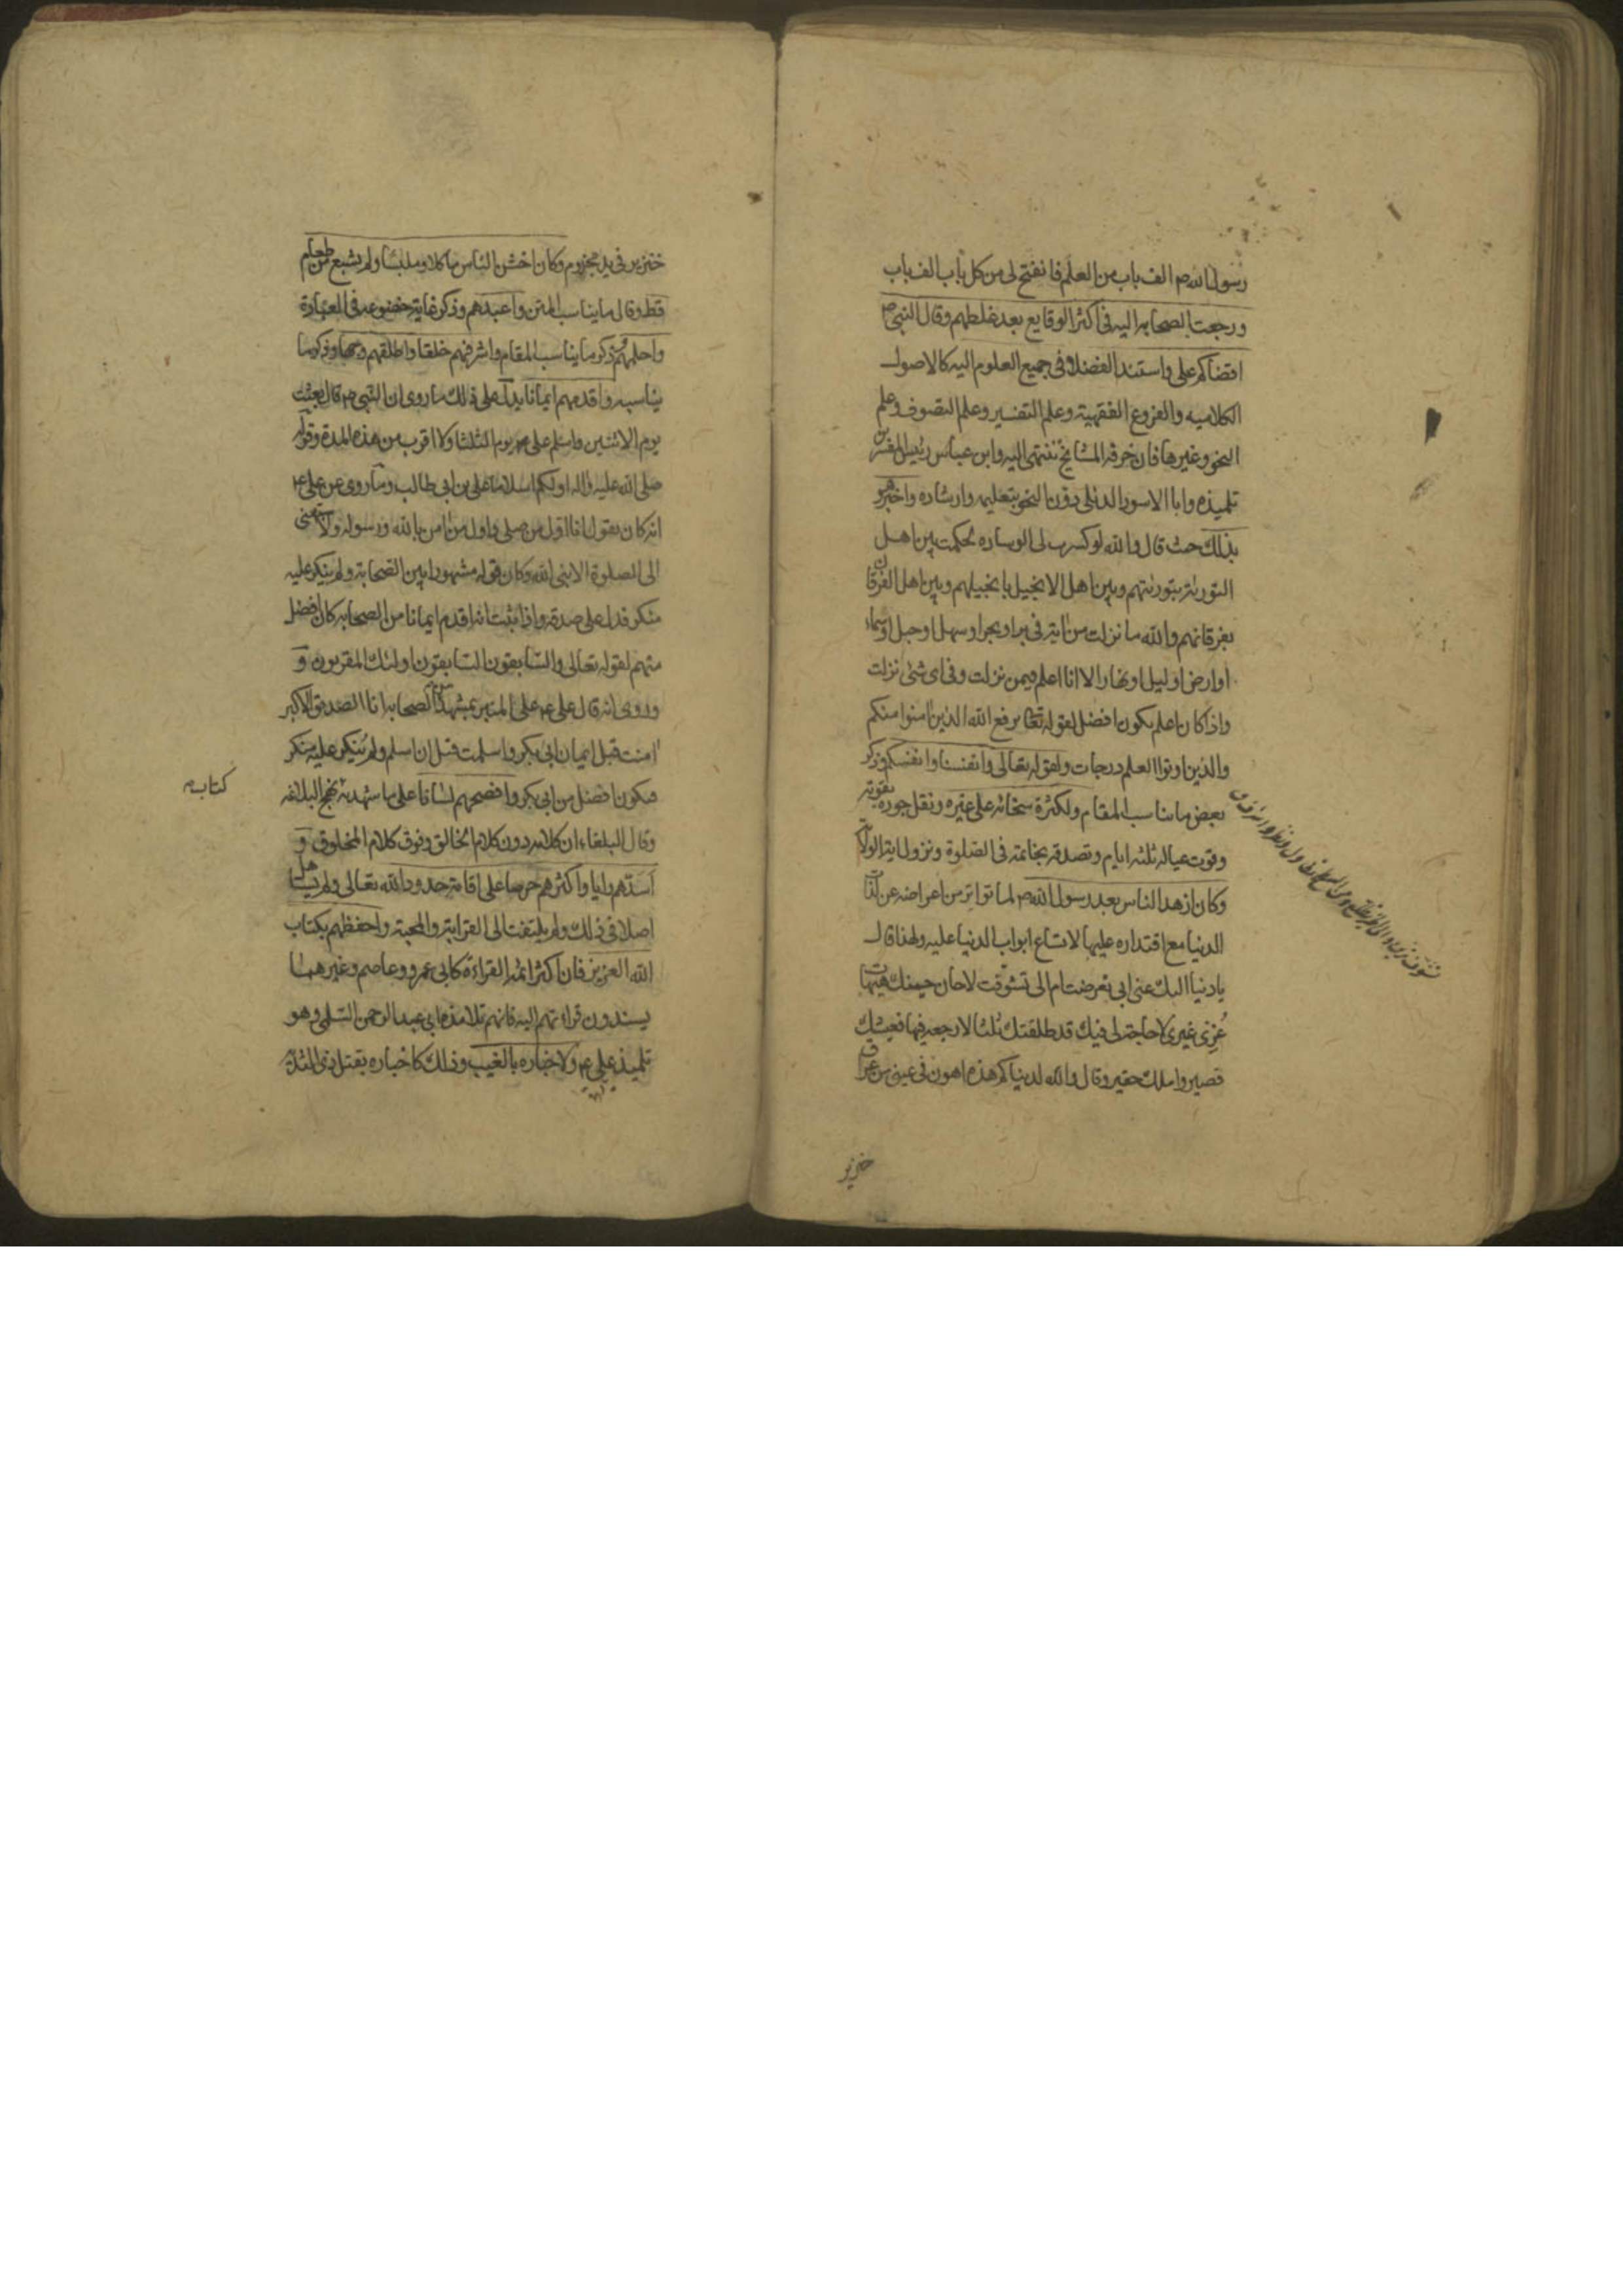 رسول الله ص الف باب من العلم فانفتح لی من کل باب الف باب
ورجعت الصحابه الیه فی اکثر الوقایع بعد غلطهم وقال النبی ص
اقضاکم علی واستند الفضلا فی جمیع العلوم الیه کالاصول
الکلامیه والفروع الفقهیة وعلم التفسیر وعلم التصوف وعلم
النحو وغیرها فان خرقه المشایخ تنتهی الیه وابن عباس رئیس المفسرین
تلمیذه وابا الاسود الدئلی دون النحو بتعلیمه وارشاده واخبر هو
بذلک حیث قال والله لو کسرت لی الوساده لحکمت بین اهل
التوریة بتوریتهم وبین اهل الانجیل بانجیلهم وبین اهل الفرقان
بفرقانهم والله ما نزلت من ایة فی بر او بحر او سهل او جبل او سماء
او ارض او لیل او نهار الا انا اعلم فیمن نزلت وفی ای شئ نزلت
واذا کان اعلم یکون افضل لقوله تعا یرفع الله الذین امنوا منکم
والذین اوتوا العلم درجات ولقوله تعالی وانفسنا وانفسکم وذکر
بعض ما یناسب المقام ولکثرة سخائه علی غیره ونقل جوده بقوته
وقوت عیاله ثلثه ایام وتصدقه بخاتمه فی الصلوة ونزول ایة الولایة
وکان ازهد الناس بعد رسول الله ص لما تواتر من اعراضه عن لذات
الدنیا مع اقتداره علیها لاتساع ابواب الدنیا علیه ولهذا قال
یا دنیا الیک عنی ابی تعرضت ام الی تشوقت لا حان حینک هیهات
غری غیری لا حاجة لی فیک قد طلقتک ثلثا لا رجعه فیها فعیشک
قصیر واملک حقیر وقال والله لدنیاکم هذه اهون فی عینی من عراق
خنزیر
خنزیر فی ید مجزوم وکان اخشن الناس ماکلا وملبسا ولم یشبع من طعام
قط وقال ما یناسب المتن واعبدهم وذکر غایة خضوعه فی العبادة
واحلمهم وذکر ما یناسب المقام واشرفهم خلقا واطلقهم وجها وذکر ما
یناسبه واقدمهم ایمانا یدل علی ذلک ما روی ان النبی ص قال بعثت
یوم الاثنین واسلم علی ع یوم الثلثا ولا اقرب من هذه المدة وقوله
صلی الله علیه واله اولکم اسلاما علی بن ابی طالب وما روی عن علی ع
انه کان یقول انا اول من صلی واول من امن بالله ورسوله ولا سبقنی
الی الصلوة الا نبی الله وکان قوله مشهورا بین الصحابة ولم ینکر علیه
منکر فدل علی صدقه واذا ثبت انه اقدم ایمانا من الصحابه کان افضل
منهم لقوله تعالی والسابقون السابقون اولئک المقربون و
وروی انه قال علی ع علی المنبر بمشهد من الصحابه انا الصدیق الاکبر
امنت قبل ایمان ابی بکر واسلمت قبل ان اسلم ولم ینکر علیه منکر
فیکون افضل من ابی بکر وافصحهم لسانا علی ما شهد به نهج البلاغه
کتاب
وقال البلغاء ان کلامه دون کلام الخالق وفوق کلام المخلوق و
اسدهم رایا واکثرهم حرصا علی اقامة حدود الله تعالی ولم یتساهل
اصلا فی ذلک ولم یلتفت الی القرابة والمحبة واحفظهم بکتاب
الله العزیز فان اکثر ائمة القراءة کابی عمرو وعاصم وغیرهما
یسندون قراءتهم الیه فانهم تلامذه ابی عبد الرحمن السلمی وهو
تلمیذ علی ع ولاخباره بالغیب وذلک کاخباره بقتل ذی الثدیة